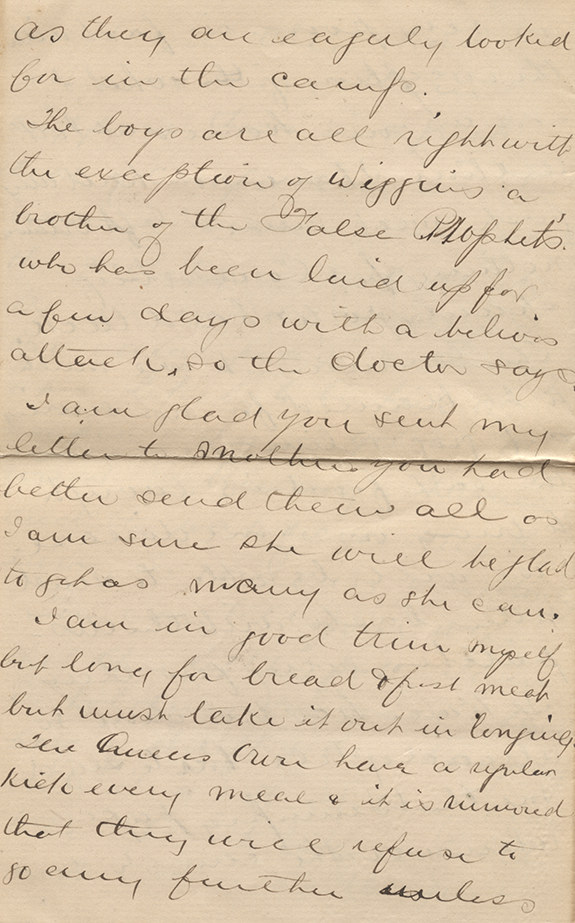 as they are eagerly looked
for in the camp.
The boys are all right with
the exception of Wiggins a
brother of the False Prophet's.
who has been laid up for
a few days with a bilious
attack, so the doctor says.
I am glad you sent my
letter to Mother you had
better send them all as
I am sure she will be glad
to get as many as she can.
I am in good trim myself
but long for bread & fresh meat
but must take it out in longing.
The Queens Own have a regular
kick every meal & it is rumored
that they will refuse to
go any further unless